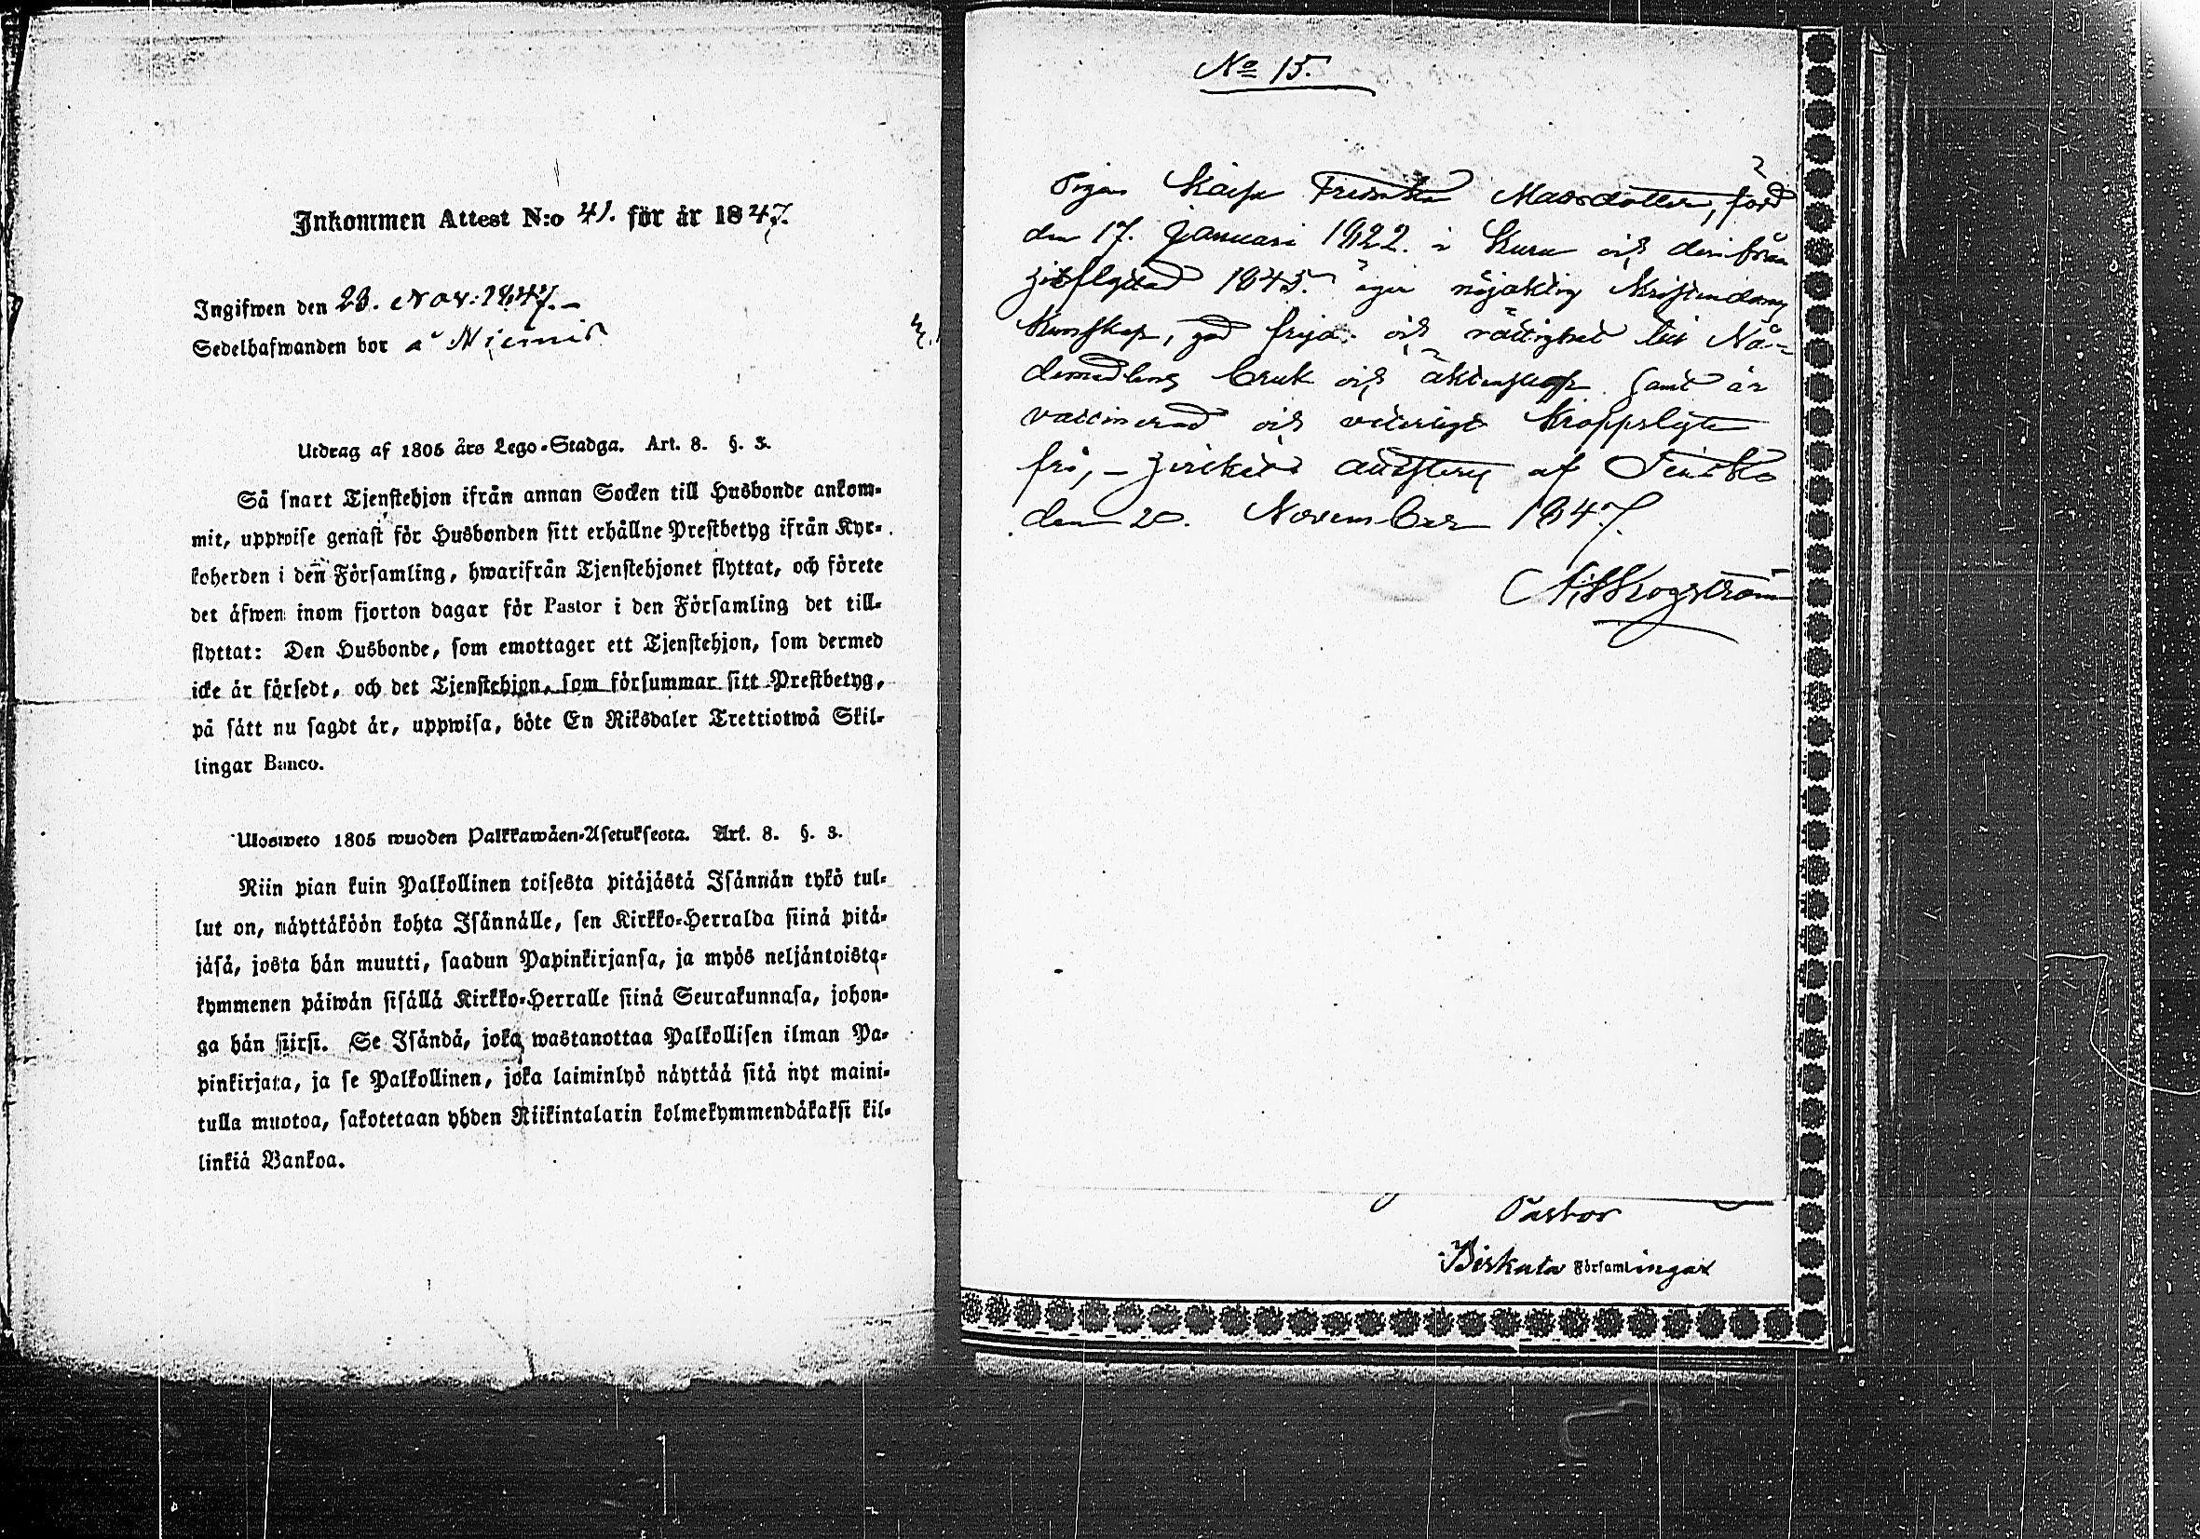 Inkommen Attest N:o 41. för år 1847.
Ingifwen den 23. Nov: 1847. -
Sedelhafwanden bor å Niemis
Utdrag af 1805 års Lego-Stadga. Art. 8. §. 3.
Så snart Tjenstehjon ifrån annan Socken till Husbonde ankom-
mit, uppwise genast för Husbonden sitt erhållne Prestbetyg ifrån Kyr-
koherden i den Församling, hwarifrån Tjenstehjonet flyttat, och förete
det äfwen inom fjorton dagar för Pastor i den Församling det till-
flyttat: Den Husbonde, som emottager ett Tjenstehjon, som dermed
icke är försedt, och det Tjenstehjon, som försummar sitt Prestbetyg,
på sätt nu sagdt är, uppwisa, böte En Riksdaler Trettiotwå Skil-
lingar Banco.
Ulosweto 1805 wuoden Palkkawäen-Asetuksesta. Art. 8. §. 3.
Niin pian kuin Palkollinen toisesta pitäjästä Isännän tykö tul-
lut on, näyttäköön kohta Isännälle, sen Kirkko-Herralda siinä pitä-
jäsä, josta hän muutti, saadun Papinkirjansa, ja myös neljäntoista-
kymmenen päiwän sisällä Kirkko-Herralle siinä Seurakunnasa, johon-
ga hän siirsi. Se Isändä, joka wastanottaa Palkollisen ilman Pa-
pinkirjata, ja se Palkollinen, joka laiminlyö näyttää sitä nyt maini-
tulla muotoa, sakotetaan yhden Riikintalarin kolmekymmendäkaksi kil-
linkiä Bankoa.
No 15.
Pigan Kaisa Fredrika Matsdotter, född
den 17. Januari 1822. i Kuru och derifrån
hitflyttad 1845. äger nöjaktig Kristendoms
Kunskap, god frejd och rättighet till Nå-
demedlens bruk och äktenskap samt är
vaccinerad och veterligt Kroppslyte
fri, - attesterar af
den 20. November 1847.
Skogström
Pastor
Birkala Församlingar